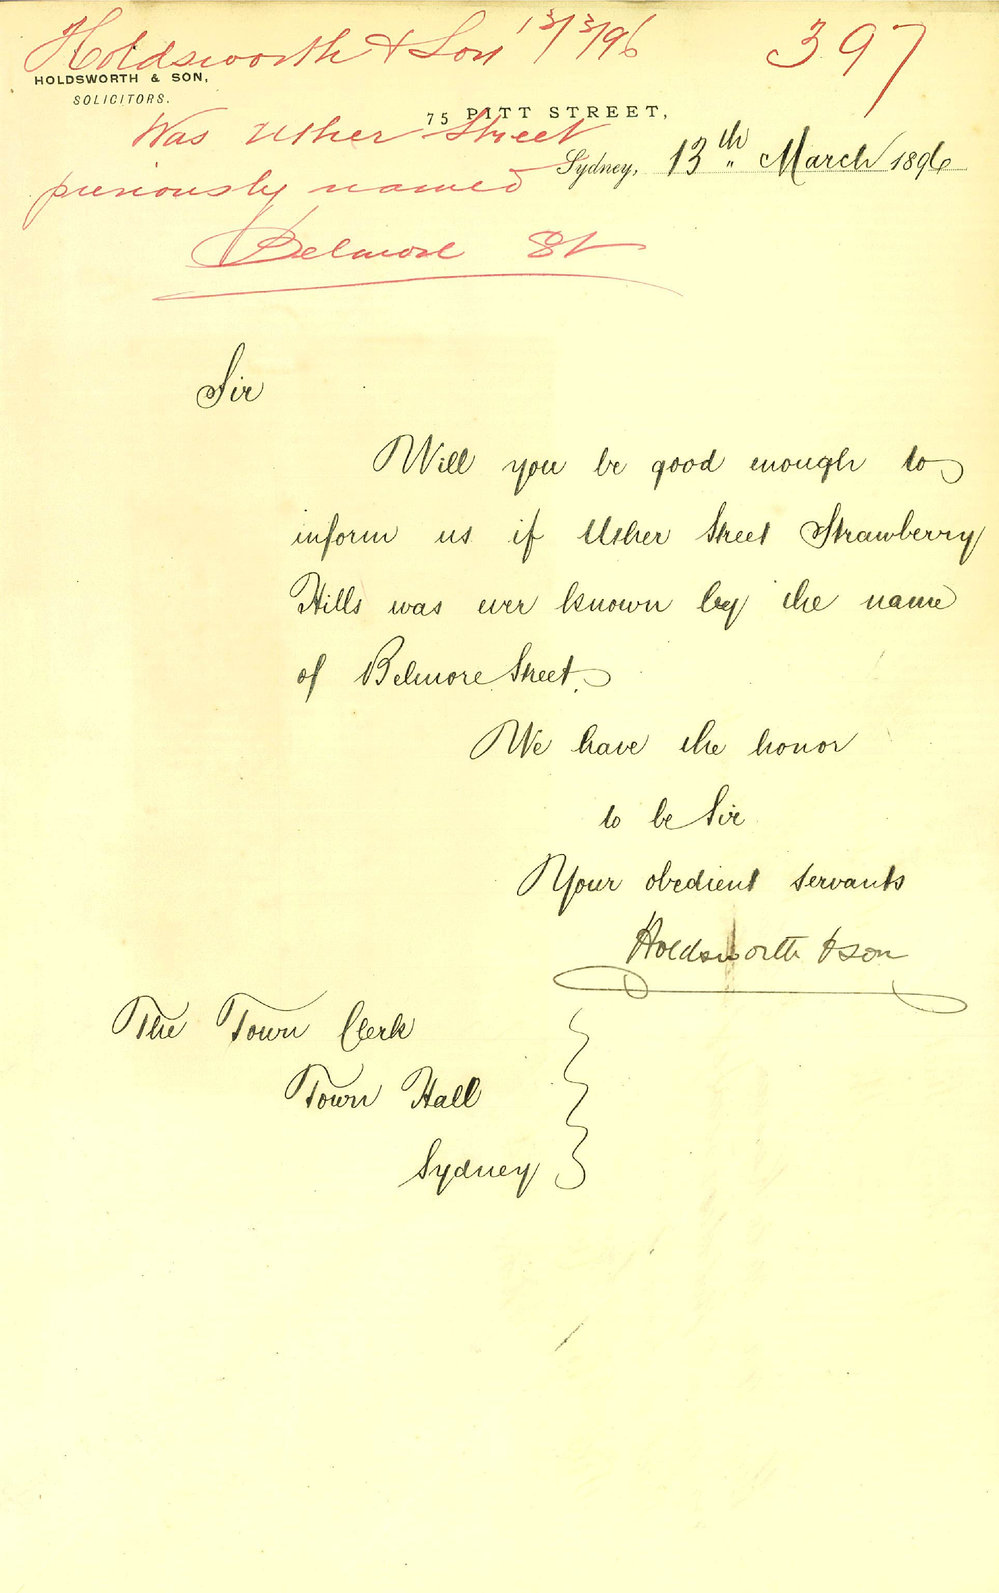 Holdsworth & Son 13/3/96
397
HOLDSWORTH & SON,
SOLICITORS.
75 PITT STREET,
Was Usher Street
Sydney, 13th March 1896
previously named
Belmore St
Sir
Will you be good enough to
inform us if Usher Street Strawberry
Hills was ever known by the name
of Belmore Street.
We have the honor
to be Sir
Your obedient servants
Holdsworth & Son
The Town Clerk
Town Hall
Sydney